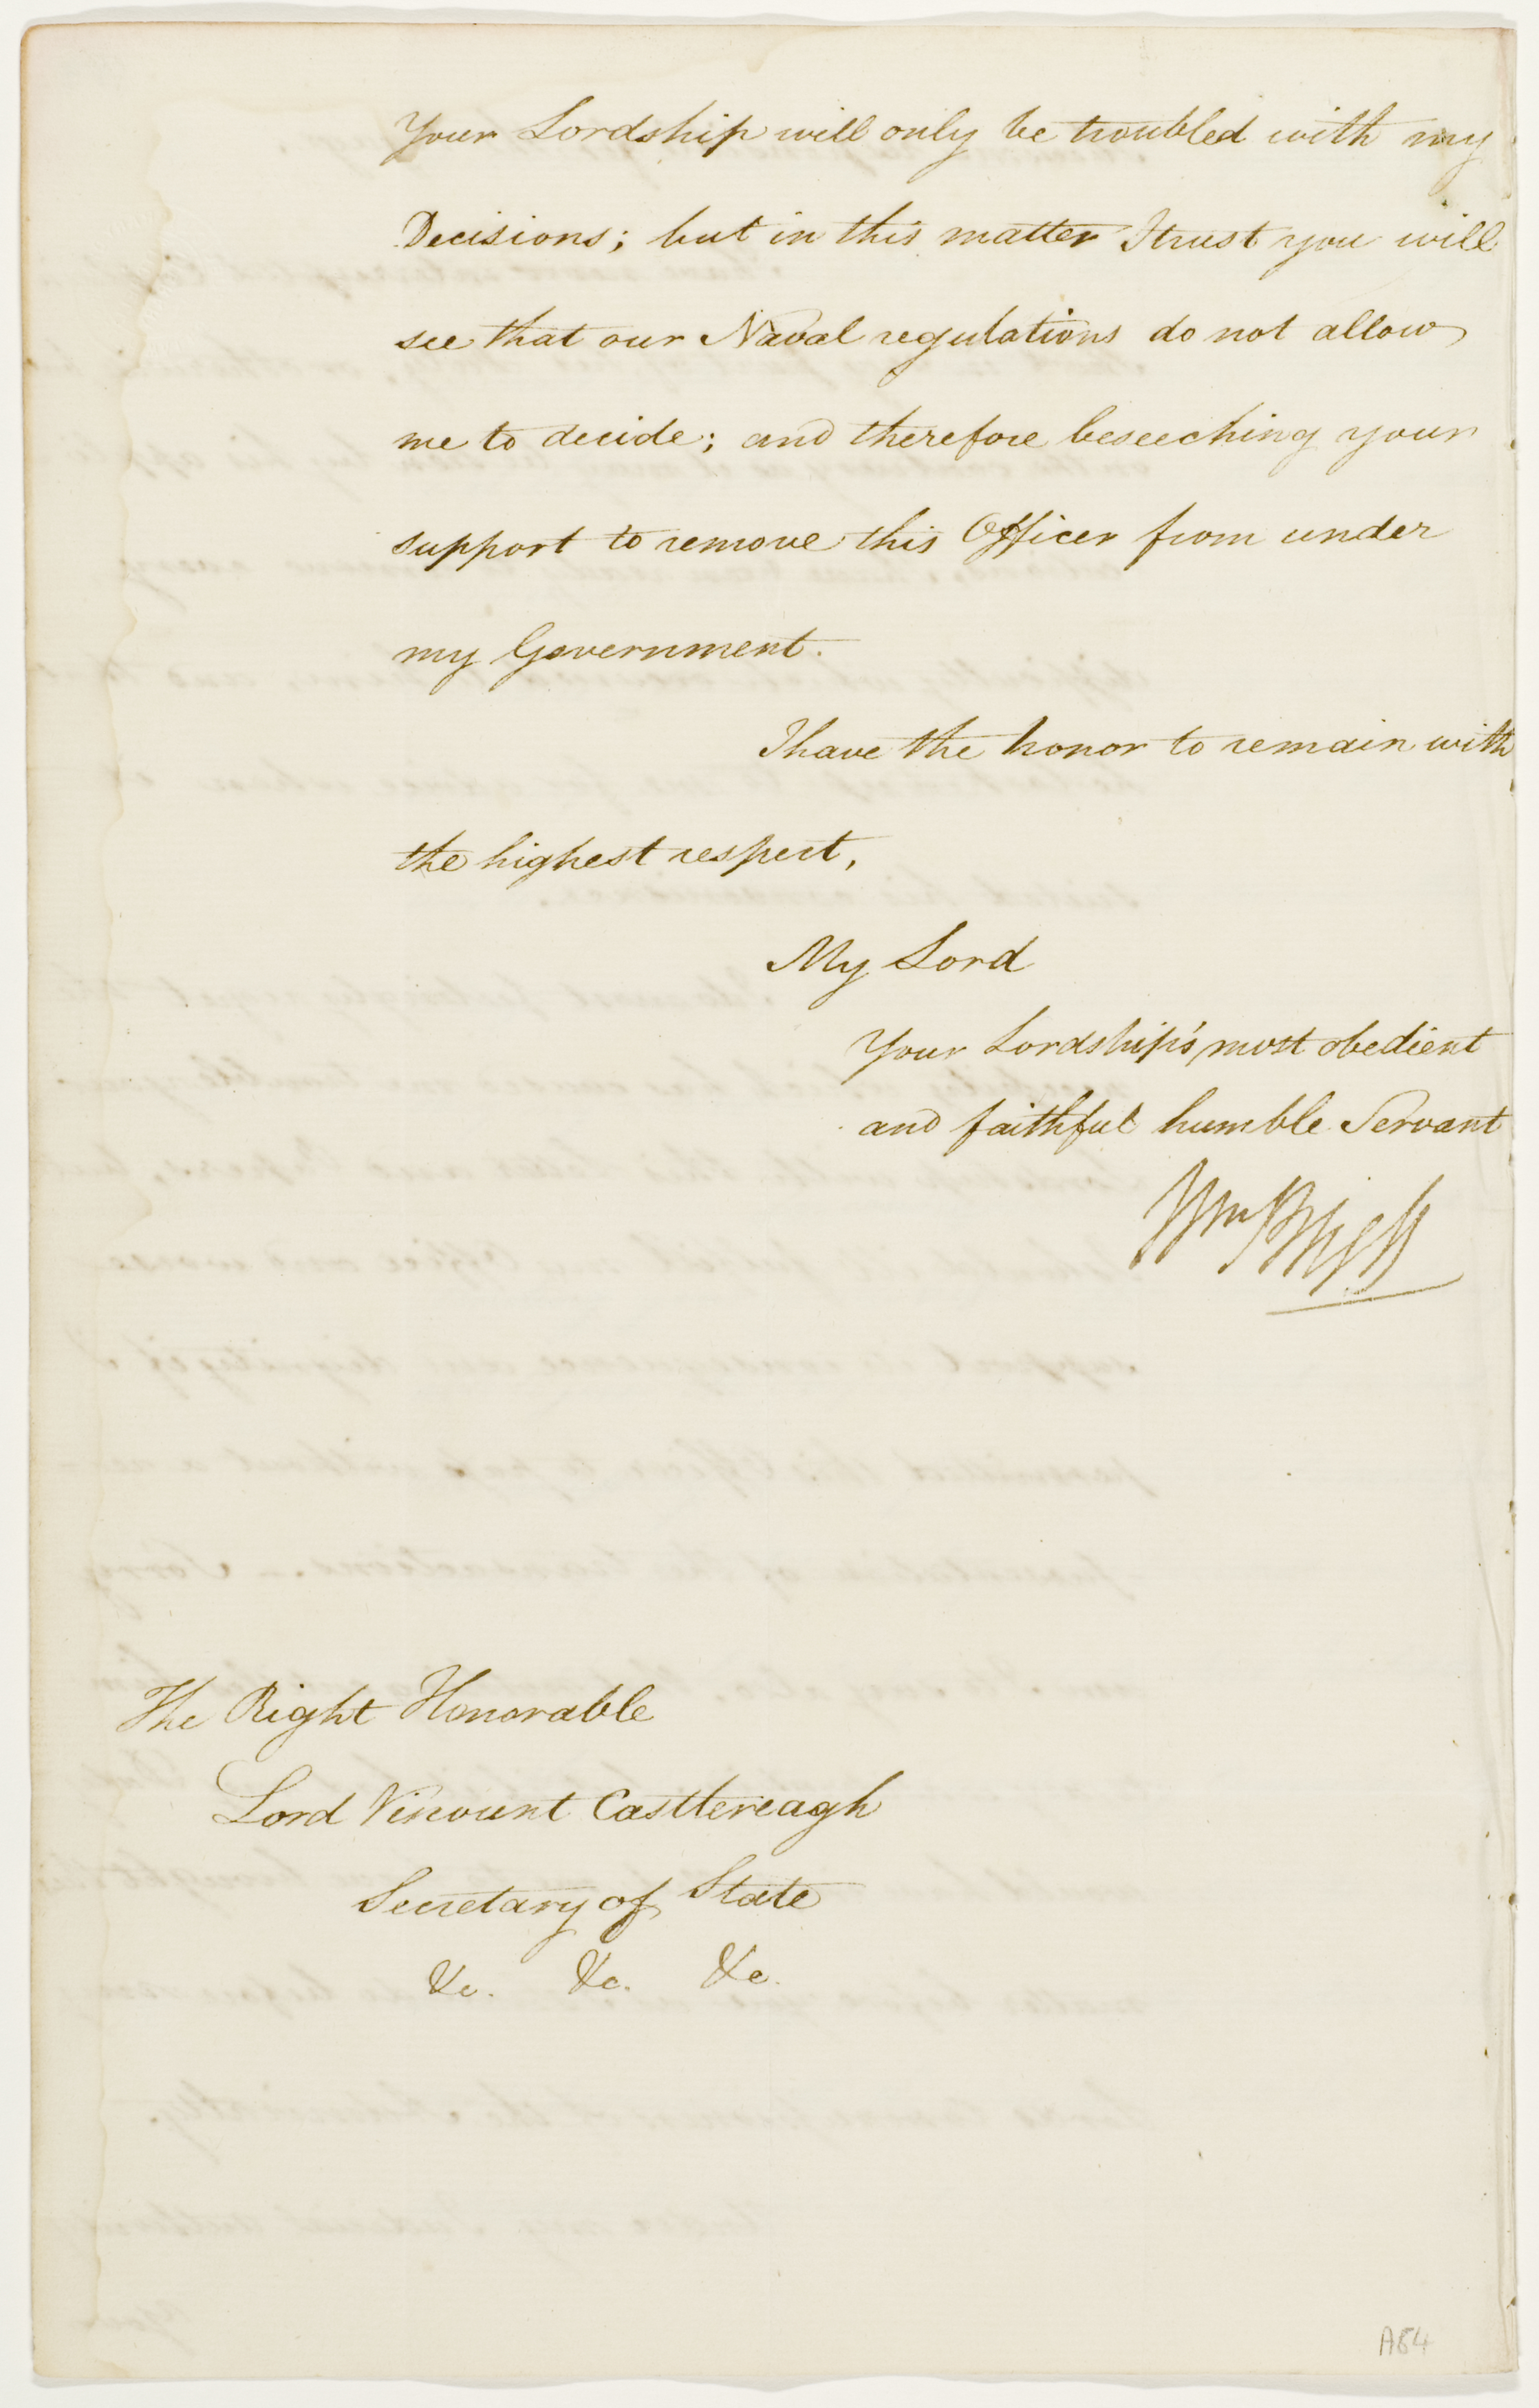 Your Lordship will only be troubled with my
Decisions; but in this matter I trust you will
see that our Naval regulations do not allow
me to decide; and therefore beseeching your
support to remove this Officer from under
my Government.
I have the honor to remain with
the highest respect,
My Lord
Your Lordship's most obedient
and faithful humble Servant
Wm Bligh
The Right Honorable
Lord Viscount Castlereagh
Secretary of State
&c. &c. &c.
A84